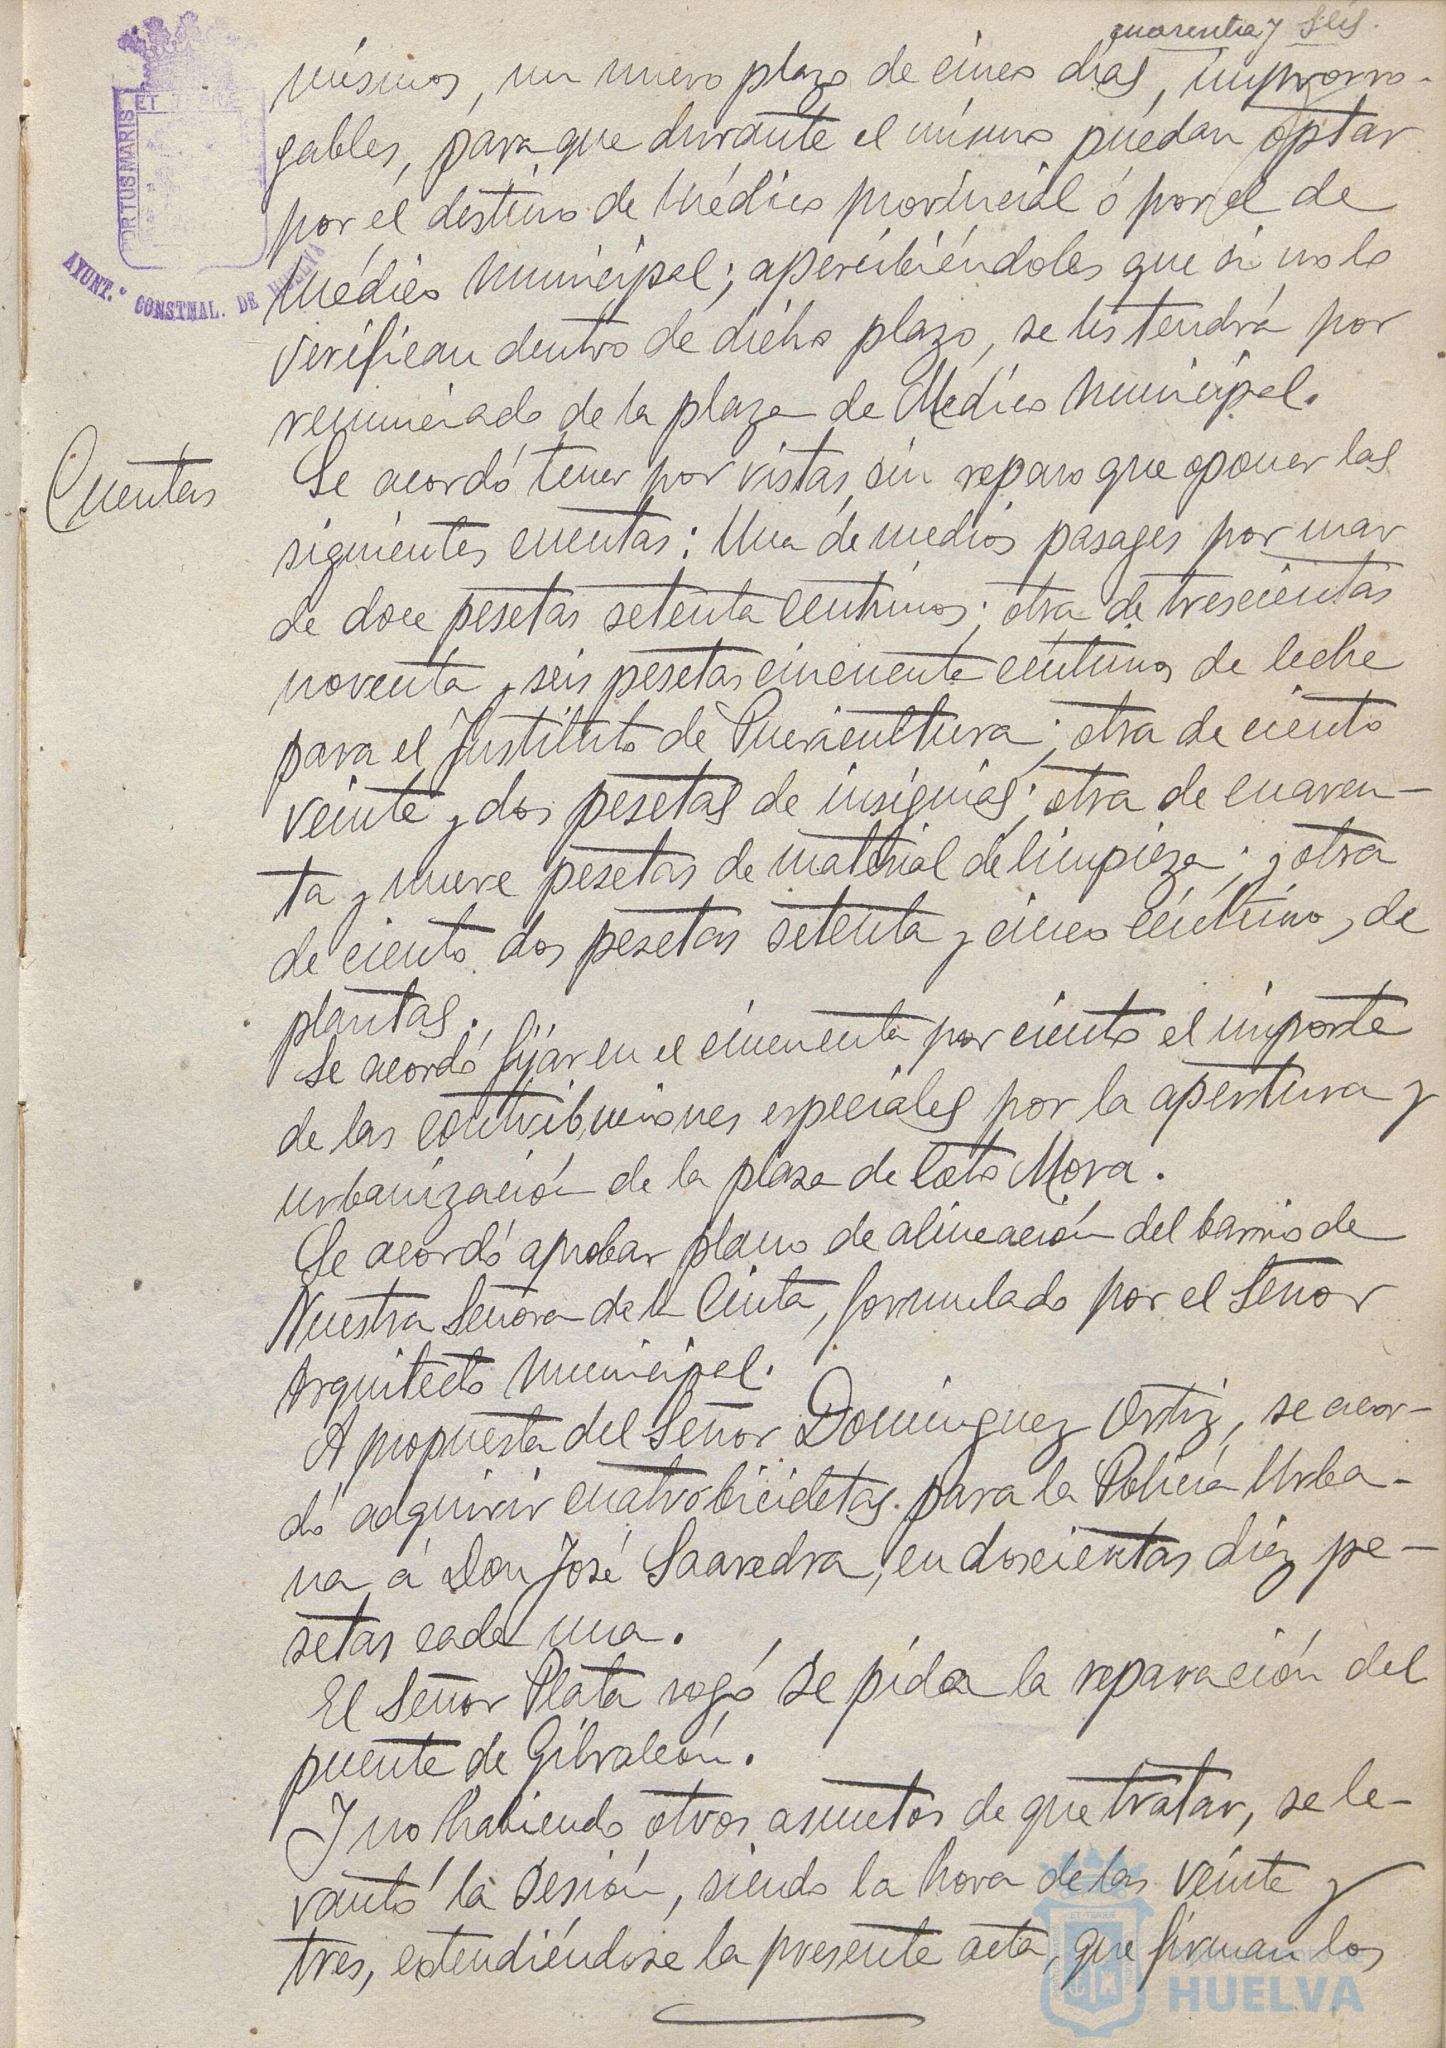 cuarenta y seis.
PORTUS MARIS ET TERRÆ
AYUNT.º CONSTNAL. DE HUELVA
mismos, un nuevo plazo de cinco dias, improrro-
gables, para que durante el mismo puedan optar
por el destino de Médico provincial ó por el de
Médico Municipal; apercibiéndoles que si no lo
verifican dentro de dicho plazo, se les tendrá por
renunciado de la plaza de Médico Municipal.
Cuentas
Se acordó tener por vistas, sin reparo que oponer las
siguientes cuentas: Una de medios pasages por mar
de doce pesetas setenta centimos; otra de trescientas
noventa y seis pesetas cincuenta céntimos de leche
para el Instituto de Puericultura; otra de ciento
veinte y dos pesetas de insignias; otra de cuaren-
ta y nueve pesetas de material de limpieza; y otra
de ciento dos pesetas setenta y cinco céntimos, de
plantas.
Se acordó fijar en el cincuenta por ciento el importe
de las contribuciones especiales por la apertura y
urbanización de la plaza de Coto Mora.
Se acordó aprobar plano de alineación del barrio de
Nuestra Señora de la Cinta, formulado por el Señor
Arquitecto Municipal.
A propuesta del Señor Dominguez Ortiz, se acor-
dó adquirir cuatro bicicletas para la Policía Urba-
na á Don José Saavedra, en doscientas diez pe-
setas cada una.
El Señor Plata rogó se pida la reparación del
puente de Gibraleón.
Y no habiendo otros asuntos de que tratar, se le-
vantó la sesión, siendo la hora de las veinte y
tres, extendiéndose la presente acta, que firman los
HUELVA